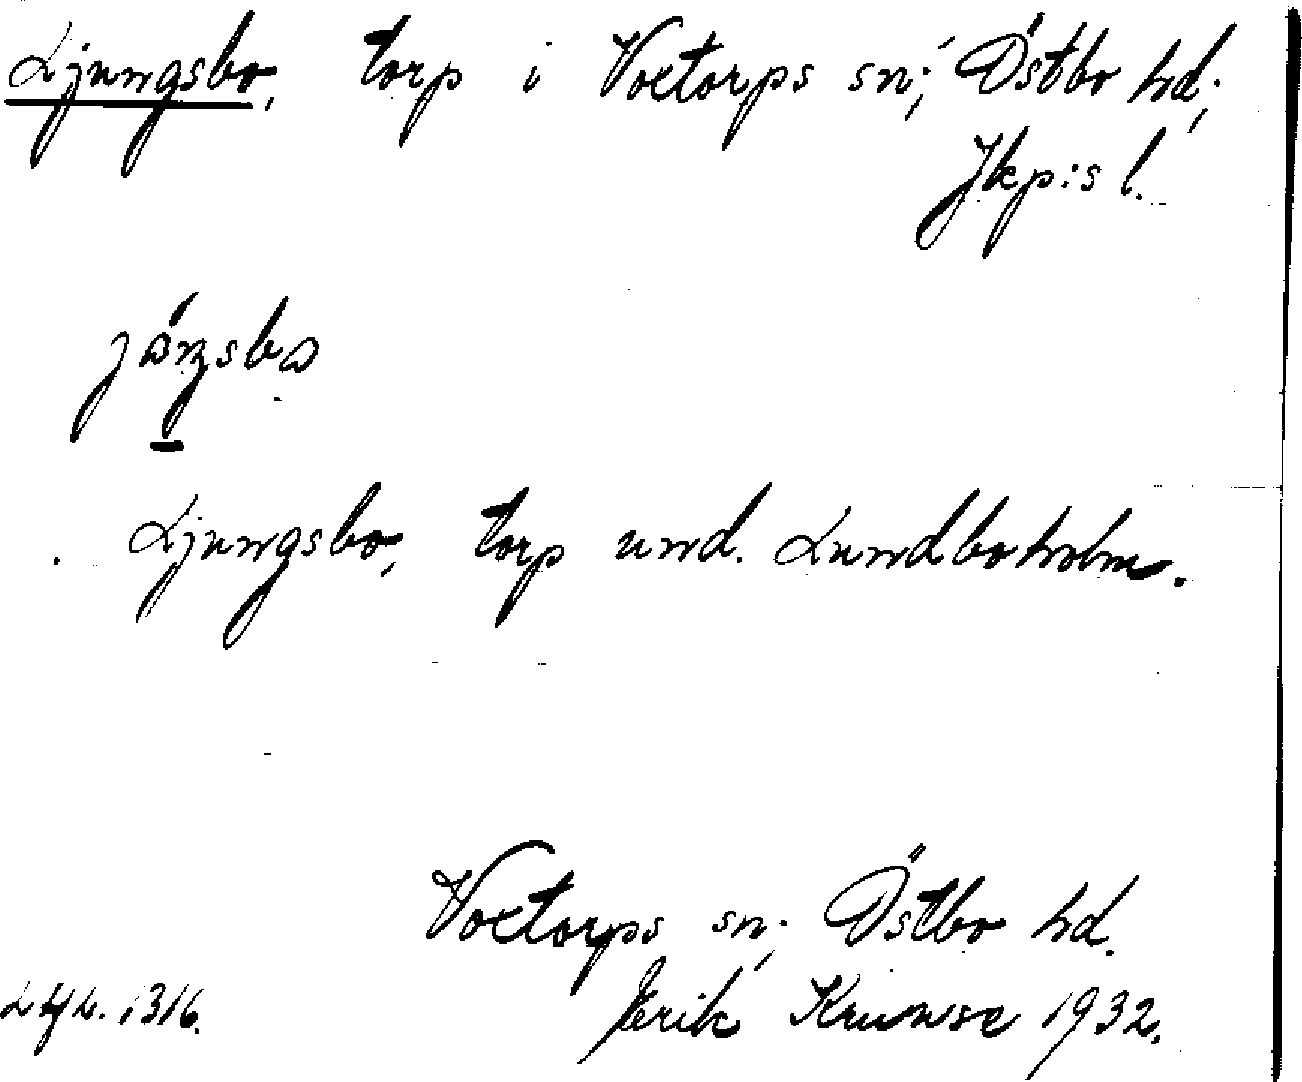 Ljungsbo, torp i Voxtorps sn; Östbo hd;
Jkp:s l.
Ljungsbo, torp und. Lundboholm.
Voxtorps sn; Östbo hd.
Erik Kruuse 1932.
1316.